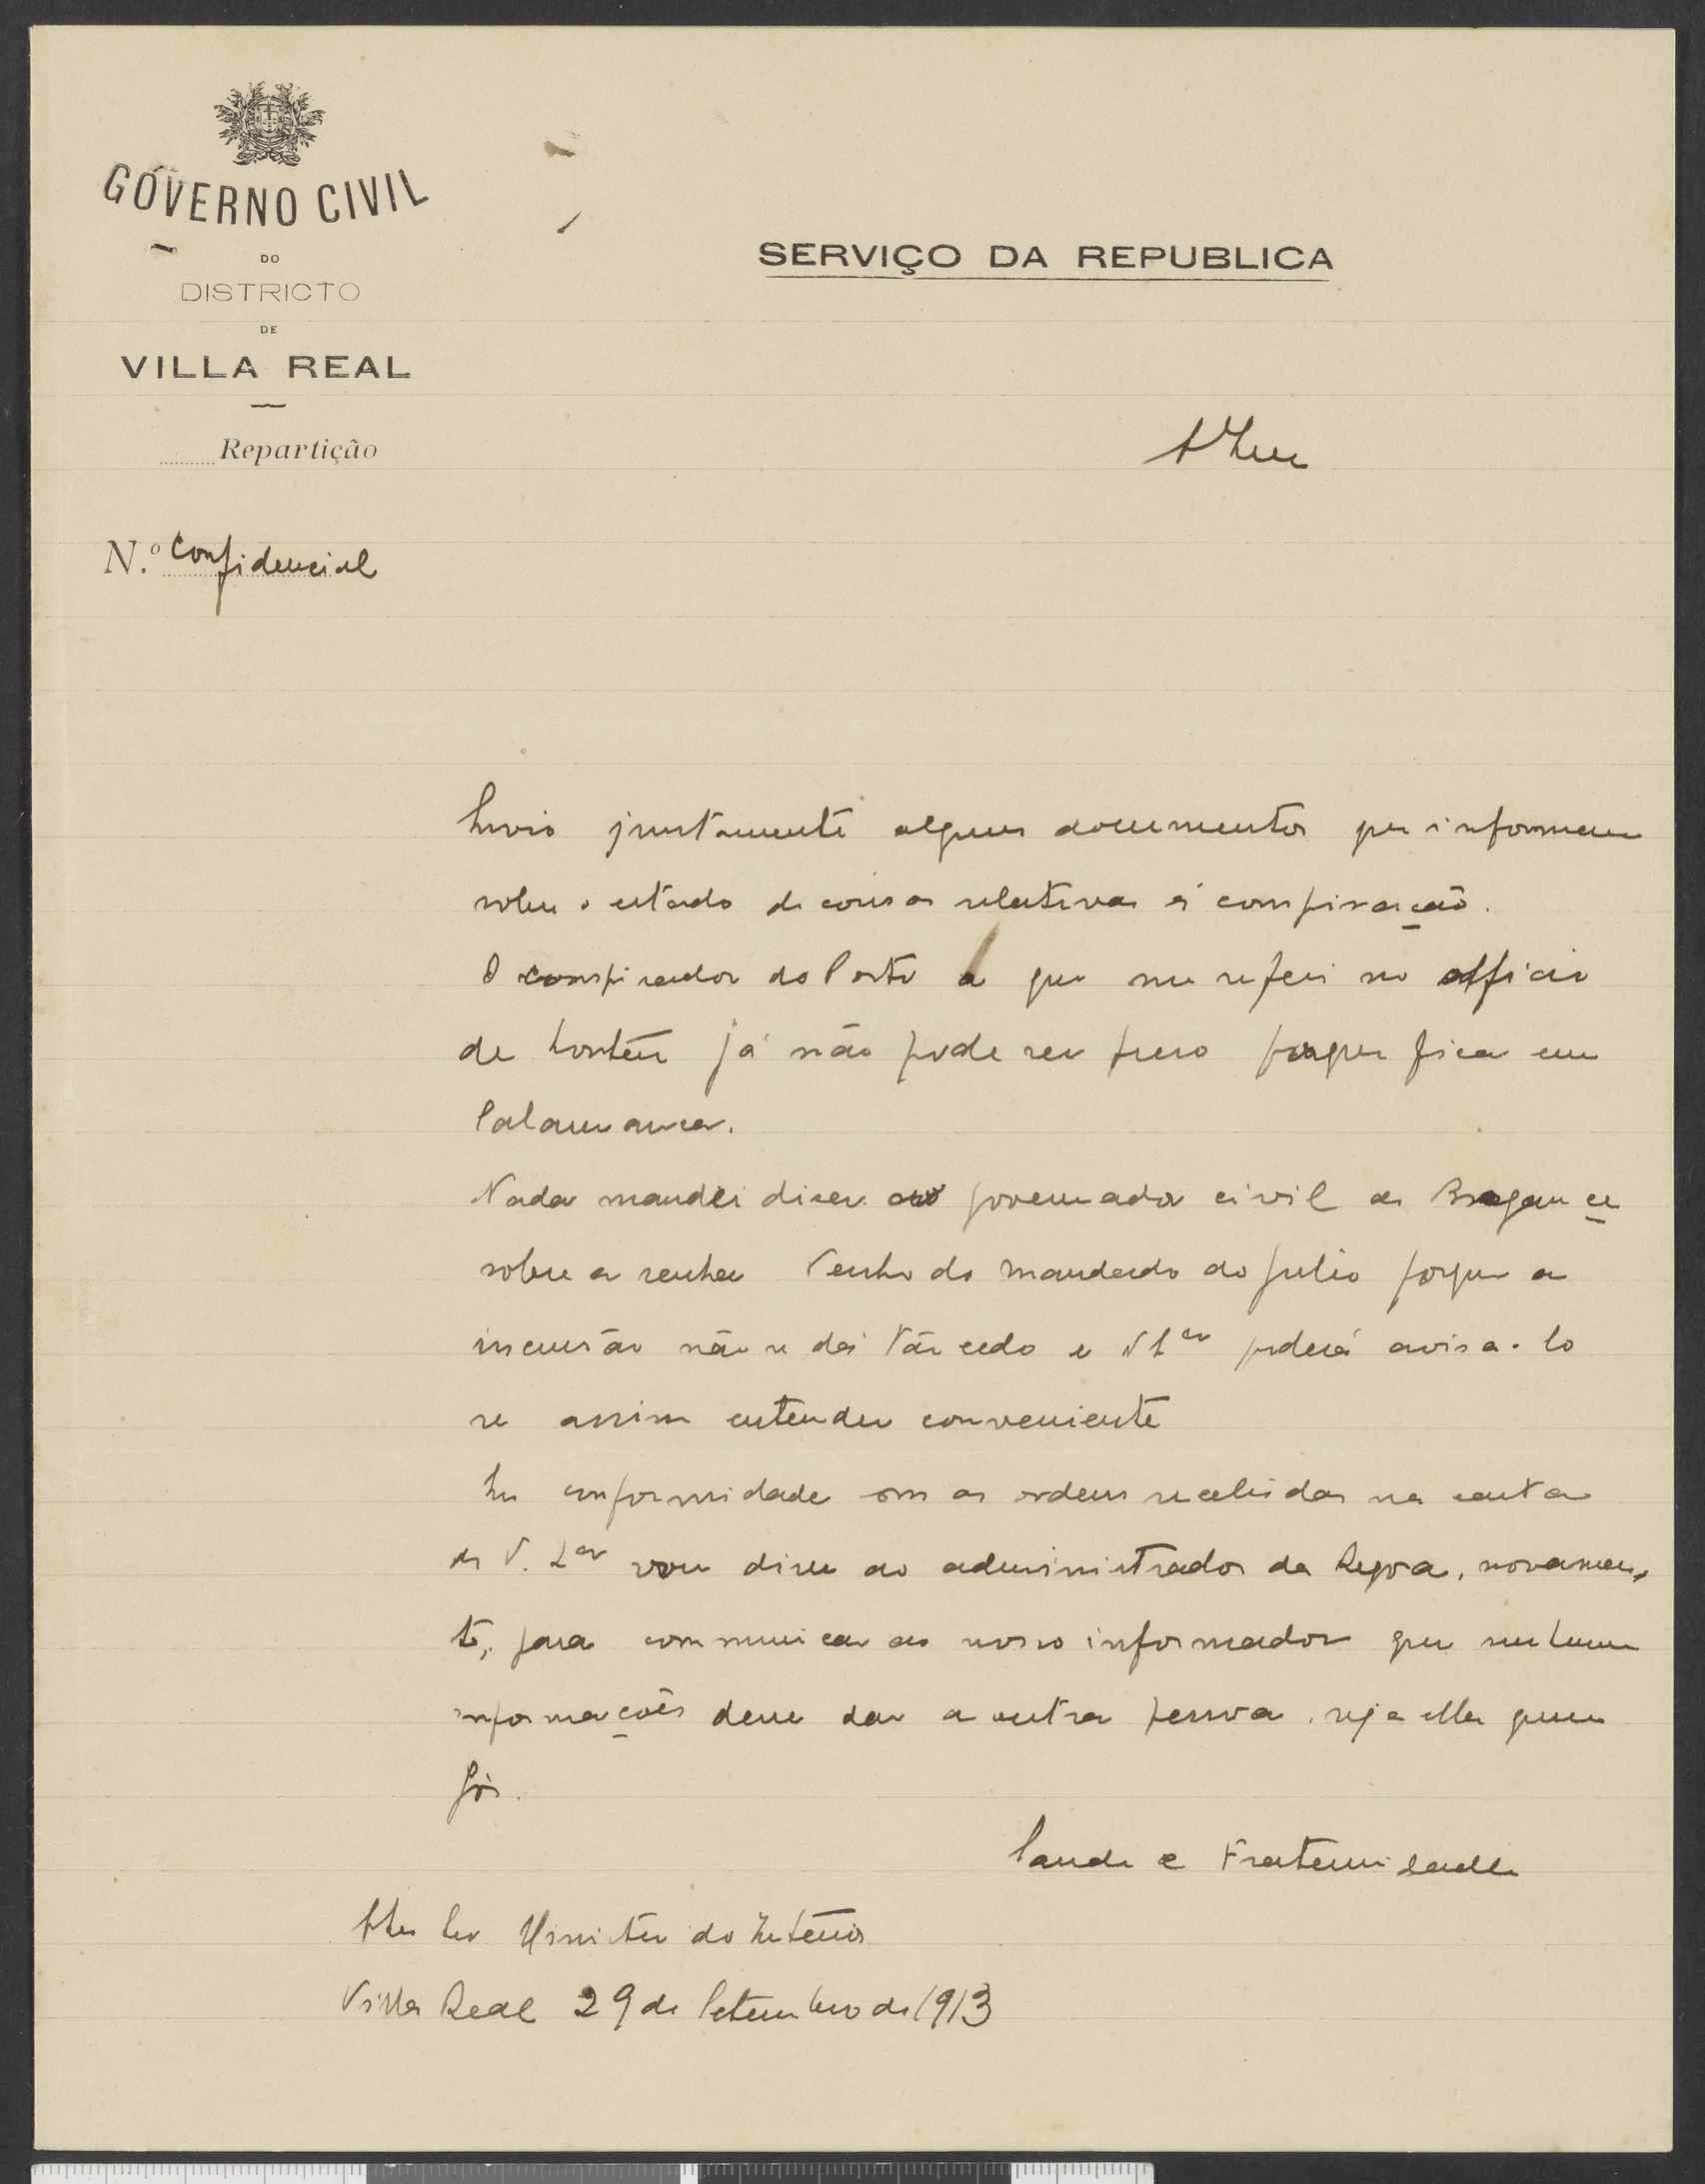 GOVERNO CIVIL
DO
DISTRICTO
DE
VILLA REAL
Repartição
N.º Confidencial
SERVIÇO DA REPUBLICA
Envio juntamente alguns documentos que informam
sobre o estado de cousas relativas á conspiração.
O conspirador do Porto a que me referi no officio
de hontem já não pode ser preso porque fica em
Salamanca.
Nada mandei dizer ao governador civil de Bragança
sobre a senha Venho do mandado do Julio porque a
incursão não se dá tão cedo e V. Exa poderá avisa-lo
se assim entender conveniente
Em conformidade com as ordens recebidas na carta
de V. Exa vou dizer ao administrador da Regoa, novamen-
te, para communicar ao nosso informador que nenhuma
informações deve dar a outra pessoa, seja ella quem
fôr.
Saude e Fraternidade
Exmo Snr Ministro do Interior
Villa Real 29 de Setembro de 1913